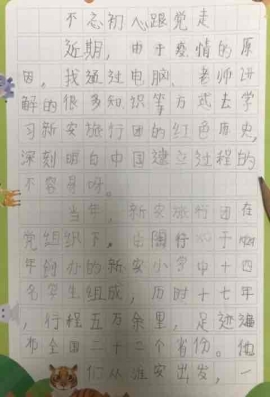 不忘初心跟党走
近期，由于疫情的原
因，我通过电脑、老师讲
解的很多知识等方式去学
习新安旅行团的红色历史，
深刻明白中国建立过程的
不容易呀。
当年，新安旅行团在
党组织下，由陶行知于1929
年创办的新安小学中十四
名学生组成，历时十七年
，行程五万余里，足迹遍
布全国二十二个省份。他
们从淮安出发，一